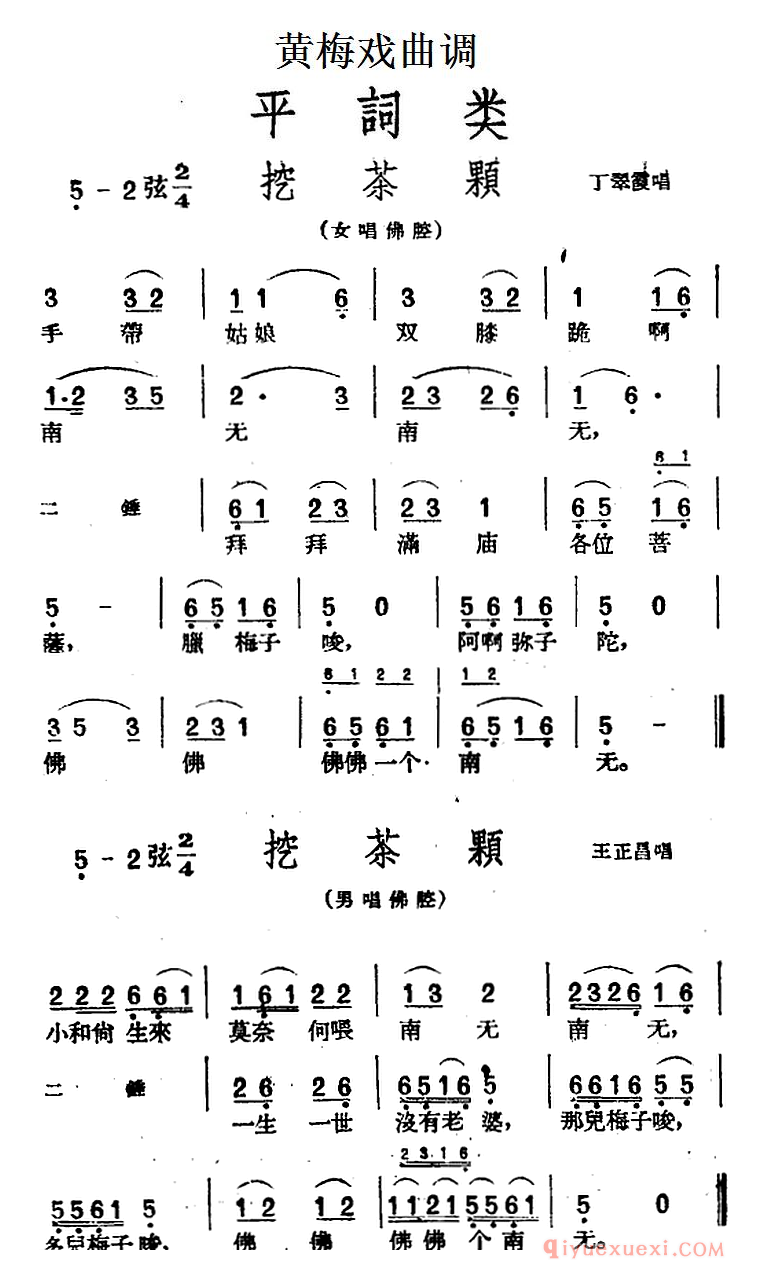 黄梅戏曲调
平詞类
5 - 2弦 2/4 挖茶顆 丁翠霞唱
(女唱佛腔)
3 3 2 | 1 1 6 | 3 3 2 | 1 1 6 |
手 帶 姑娘 双 膝 跪 啊
1·2 3 5 | 2· 3 | 2 3 2 6 | 1 6· |
南 无 南 无,
6 1
二 錘 | 6 1 2 3 | 2 3 1 | 6 5 1 6 |
拜 拜 滿 庙 各位 菩
5 - | 6 5 1 6 | 5 0 | 5 6 1 6 | 5 0
薩, 臘 梅子 唆, 阿啊弥子 陀,
6 1 2 2 | 1 2
3 5 3 | 2 3 1 | 6 5 6 1 | 6 5 1 6 | 5 - ‖
佛 佛 佛佛一个· 南 无。
5 - 2弦 2/4 挖茶顆 王正昌唱
(男唱佛腔)
2 2 2 6 6 1 | 1 6 1 2 2 | 1 3 2 | 2 3 2 6 1 6 |
小和尙 生來 莫奈 何喂 南 无 南 无,
二 錘 | 2 6 2 6 | 6 5 1 6 5 | 6 6 1 6 5 5 |
一生 一世 沒有老 婆, 那兒梅子唆,
2 3 1 6
5 5 6 1 5 | 1 2 1 2 | 1 1 2 1 5 5 6 1 | 5 0 |
兒梅子 唆, 佛 佛 佛佛 个南 无。
qiyuexuexi.com